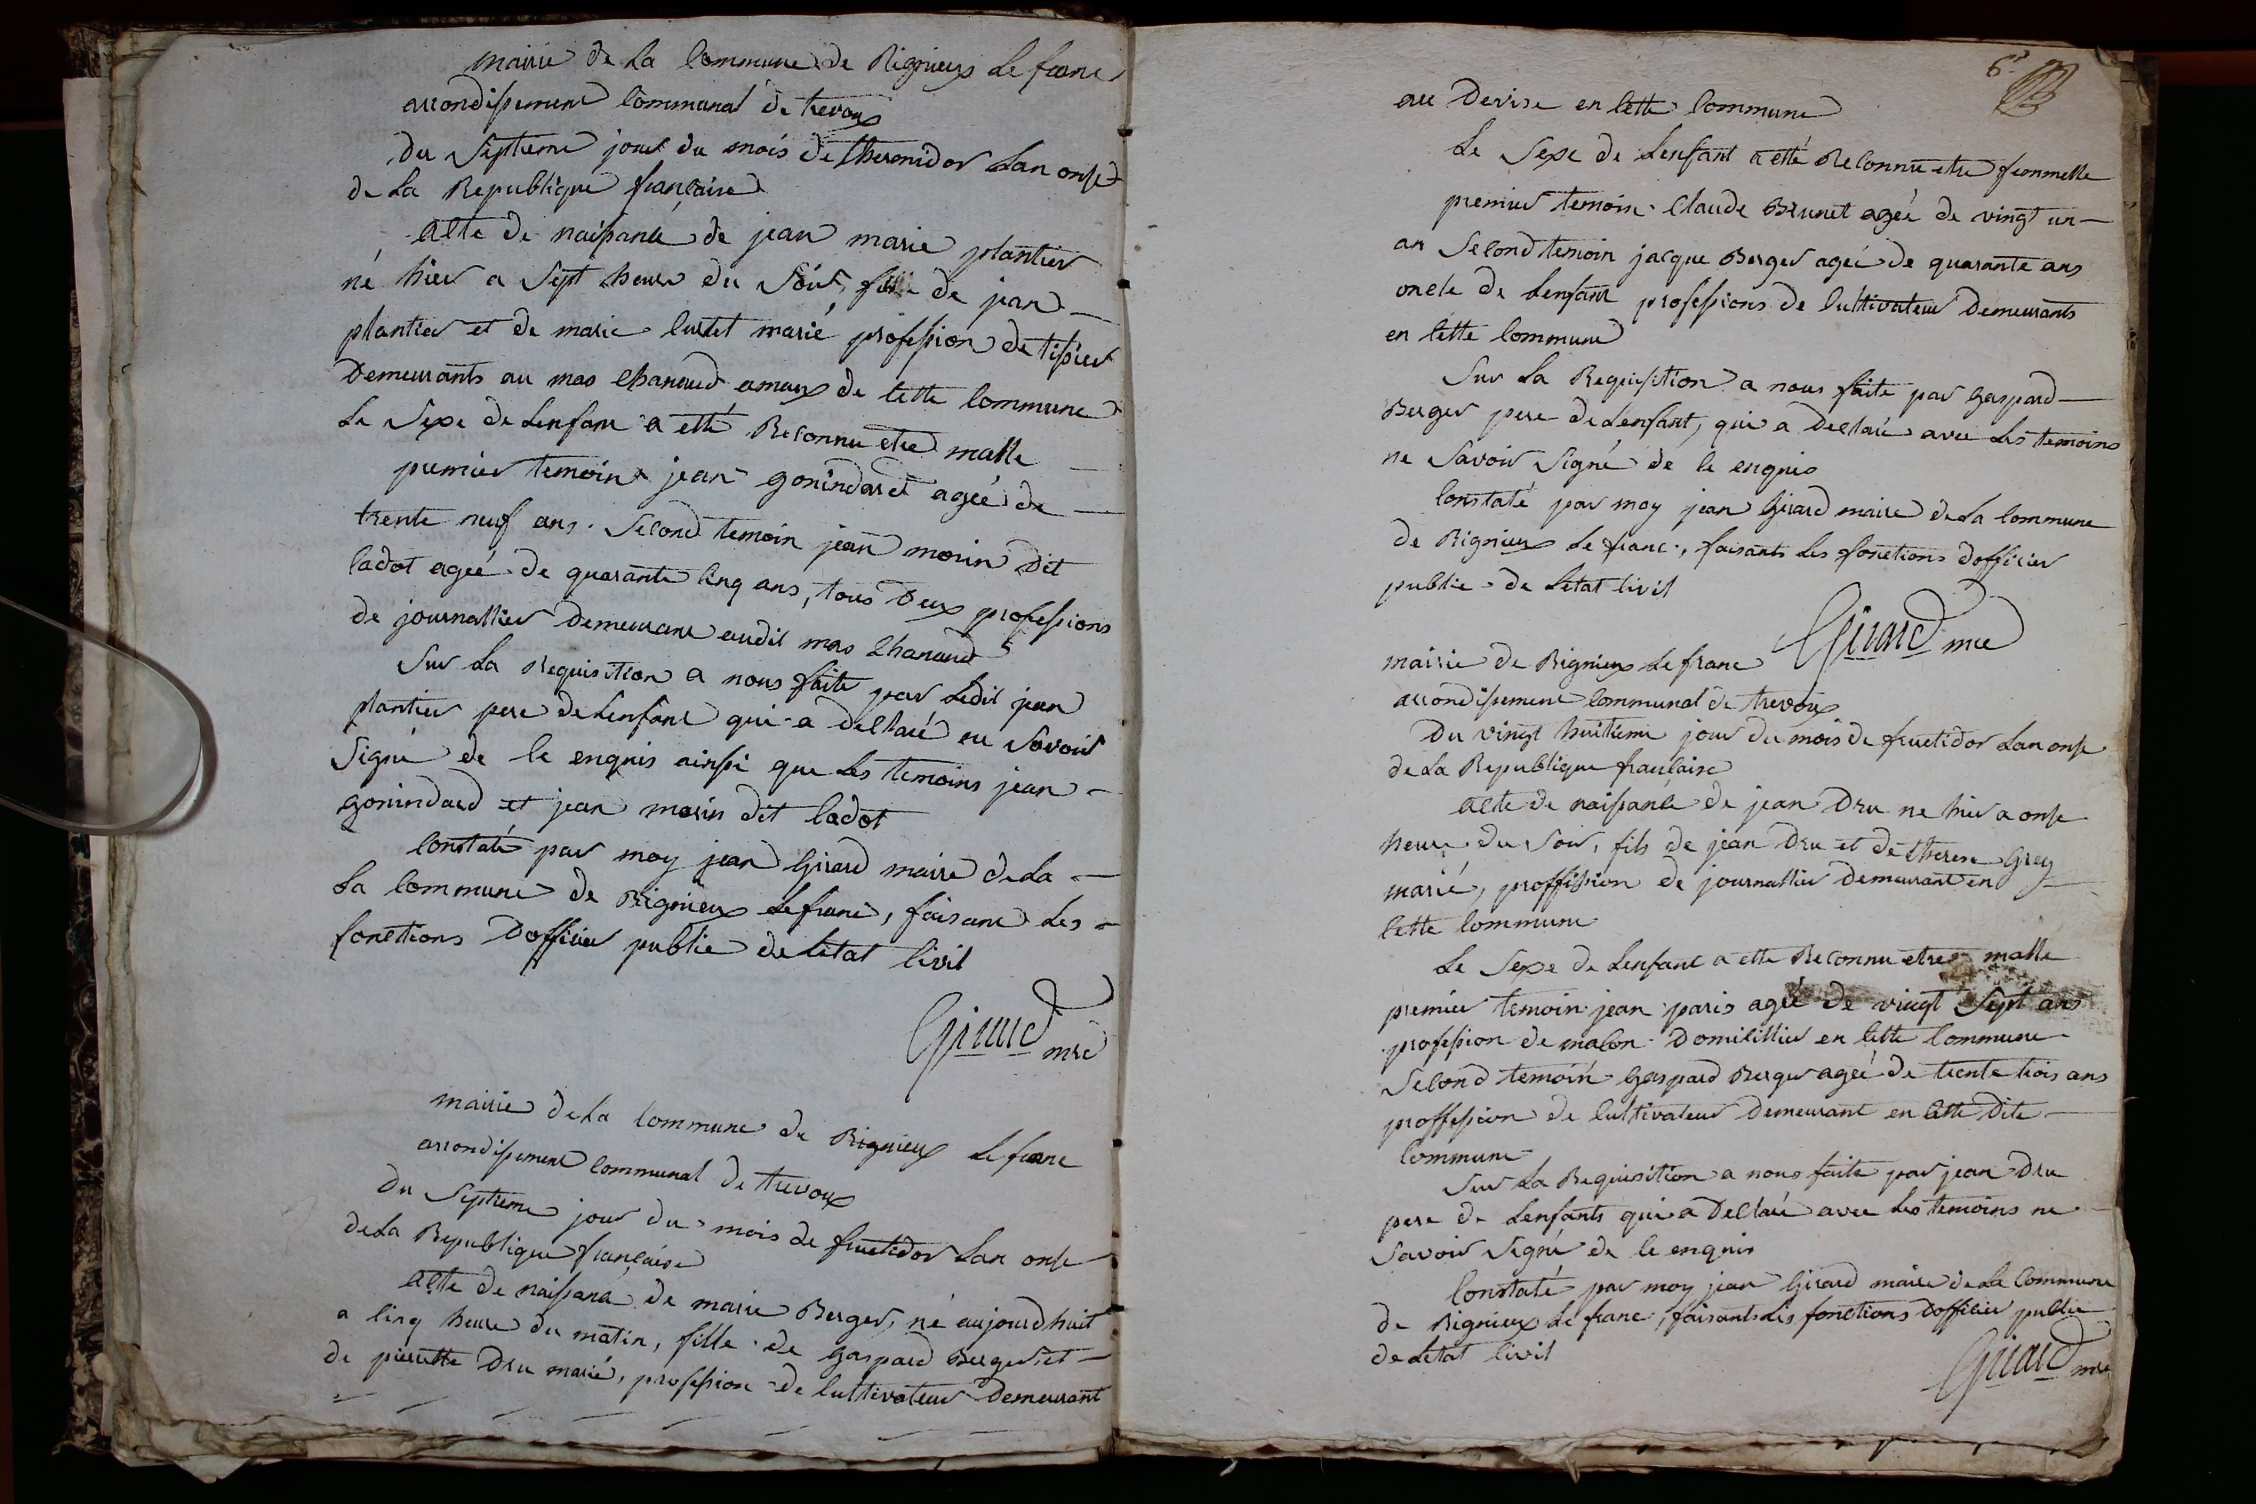 mairie de La Commune de Rignieux Le franc
arrondissement Communal de trevoux
du Septieme jour du mois de thermidor Lan onse
de La Republique francaise
Acte de naissance de jean marie plantier
né hier a Sept heure du Soir, fils de jean
plantier et de marie Curtet marié profession de tissier
Demeurants au mas Chanaud amaux de Cette Commune
Le Sexe de Lenfant a etté Reconnu etre malle
premier temoin jean gonindard ageé de
trente neuf ans. Second temoin jean morin dit
Cadot ageé de quarante Cinq ans, tous Deux professions
de journallier Demeurant audit mas Chanaud
Sur La Requisition a nous faite par Ledit jean
plantier pere de Lenfant qui a declaré ne Savoir
Signé de Ce enquis ainssi que Les temoins jean
gonindard et jean morin dit Cadot
Constaté par moy jean Girard maire de La
La Commune de Rignieux Lefranc, faisant Les
fonctions Dofficier public de Letat Civil
Girard mre
mairie de La Commune de Rignieux Le franc
arrondissement Communal de trevoux
du Septieme jour du mois de fructidor Lan onse
de La Republique francaise
Acte de naissance de marie Berger, né aujourdhuit
a Cinq heure du matin, fille de Gaspard Berger et
de pierrette Dru marié, profession de Cultivateur Demeurant
6e
au Devise en Cette Commune
Le Sexe de Lenfant a etté Reconnu etre femmelle
premier temoin Claude Brunet ageé de vingt un
an Second temoin jacque Berger ageé de quarante ans
oncle de Lenfant professions de Cultivateur Demeurants
en Cette Commune
Sur La Requisition a nous faite par gaspard
Berger pere de Lenfant, qui a Declaré avec Les temoins
ne Savoir Signé de Ce enquis
Constaté par moy jean Girard maire de La Commune
de Rignieux Le franc, faisants Les fonctions dofficier
public de Letat Civil
Girard mre
mairie de Rignieux Le franc
arrondissement Communal de trevoux
Du vingt huitieme jour du mois de fructidor Lan onse
de La Republique francaise
Acte de naissance de jean Dru ne hier a onse
heure du Soir, fils de jean Dru et de therese Grey
marié, proffission de journallier Demeurant en
Cette Commune
Le Sexe de Lenfant a ette Reconnu etre malle
premier temoin jean paris ageé de vingt Sept ans
profession de macon Domicillier en Cette Commune
Second temoin Gaspard Berger ageé de trente trois ans
proffession de Cultivateur Demeurant en Cette Dite
Commune
Sur La Requisition a nous faite par jean Dru
pere de Lenfants qui a Declaré avec Les temoins ne
Savoir Signé de Ce enquis
Constaté par moy jean Girard maire de La Commune
de Rignieux Le franc, faisants Les fonctions Dofficier public
de Letat Civil
Girard mre